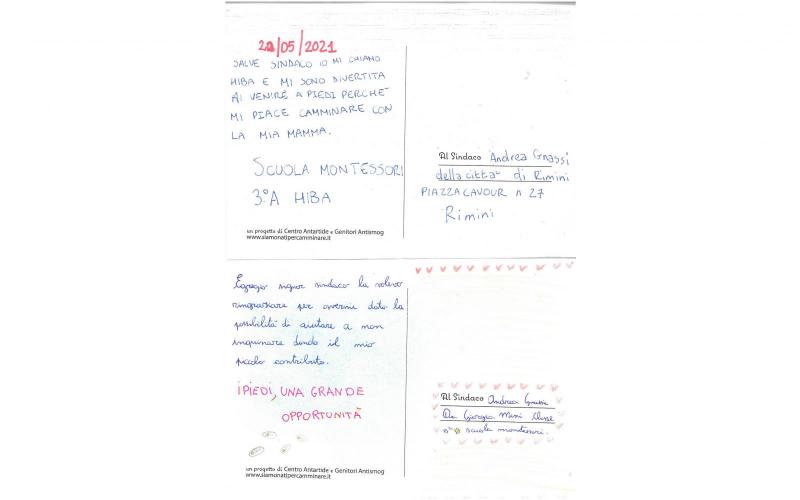 22/05/2021
SALVE SINDACO IO MI CHIAMO
HIBA E MI SONO DIVERTITA
AI VENIRE A PIEDI PERCHE'
MI PIACE CAMMINARE CON
LA MIA MAMMA.
SCUOLA MONTESSORI
3°A HIBA
un progetto di Centro Antartide e Genitori Antismog
www.siamonatipercamminare.it
Al Sindaco Andrea Gnassi
della citta' di Rimini
PIAZZA CAVOUR n 27
Rimini
Egregio signor sindaco la volevo
ringraziare per avermi dato la
possibilità di aiutare a non
inquinare dando il mio
piccolo contributo.
I PIEDI, UNA GRANDE
OPPORTUNITÀ
un progetto di Centro Antartide e Genitori Antismog
www.siamonatipercamminare.it
Al Sindaco Andrea Gnassi
Da Giorgia Mini classe
scuola montessori.